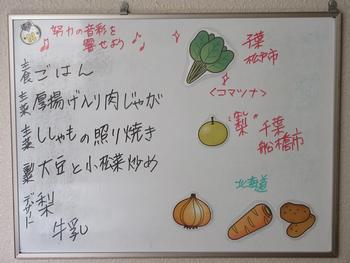 努力の音彩を
響せよう
主食 ごはん
主菜 厚揚げ入り肉じゃが
主菜 ししゃもの照り焼き
副菜 大豆と小松菜炒め
デザート 梨
牛乳
千葉
松戸市
<コマツナ>
"梨"
千葉
船橋市
北海道